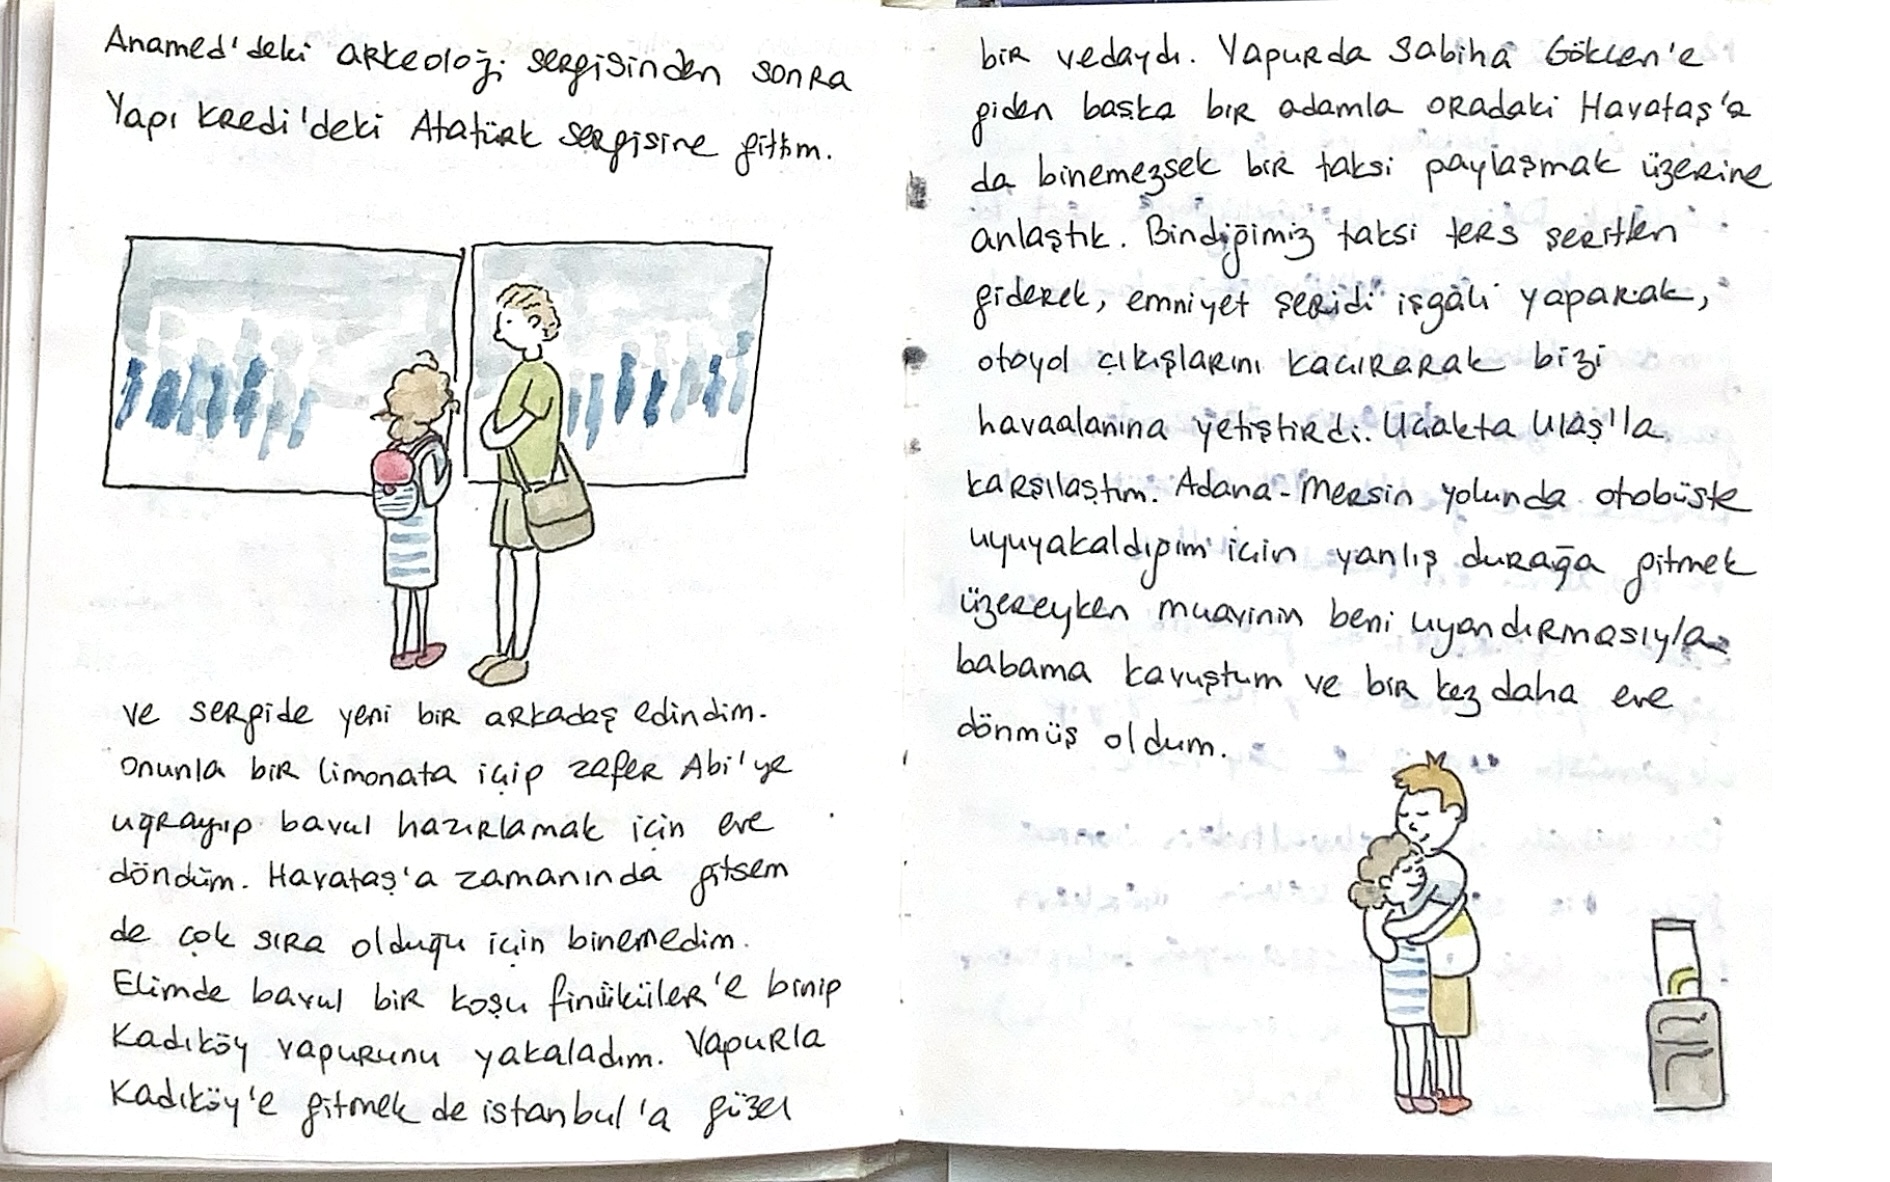 Anamed'deki arkeoloji sergisinden sonra
Yapı Kredi'deki Atatürk sergisine gittim.
ve sergide yeni bir arkadaş edindim.
Onunla bir limonata içip Zafer Abi'ye
uğrayıp bavul hazırlamak için eve
döndüm. Havataş'a zamanında gitsem
de çok sıra olduğu için binemedim.
Elimde bavul bir koşu finüküler'e binip
Kadıköy vapurunu yakaladım. Vapurla
Kadıköy'e gitmek de istanbul'a güzel
bir vedaydı. Vapurda Sabiha Gökcen'e
giden başka bir adamla oradaki Havataş'a
da binemezsek bir taksi paylaşmak üzerine
anlaştık. Bindiğimiz taksi ters şeritten
giderek, emniyet şeridi işgali yaparak,
otoyol çıkışlarını kaçırarak bizi
havaalanına yetiştirdi. Uçakta Ulaş'la
karşılaştım. Adana-Mersin yolunda otobüste
uyuyakaldığım için yanlış durağa gitmek
üzereyken muavinin beni uyandırmasıyla
babama kavuştum ve bir kez daha eve
dönmüş oldum.